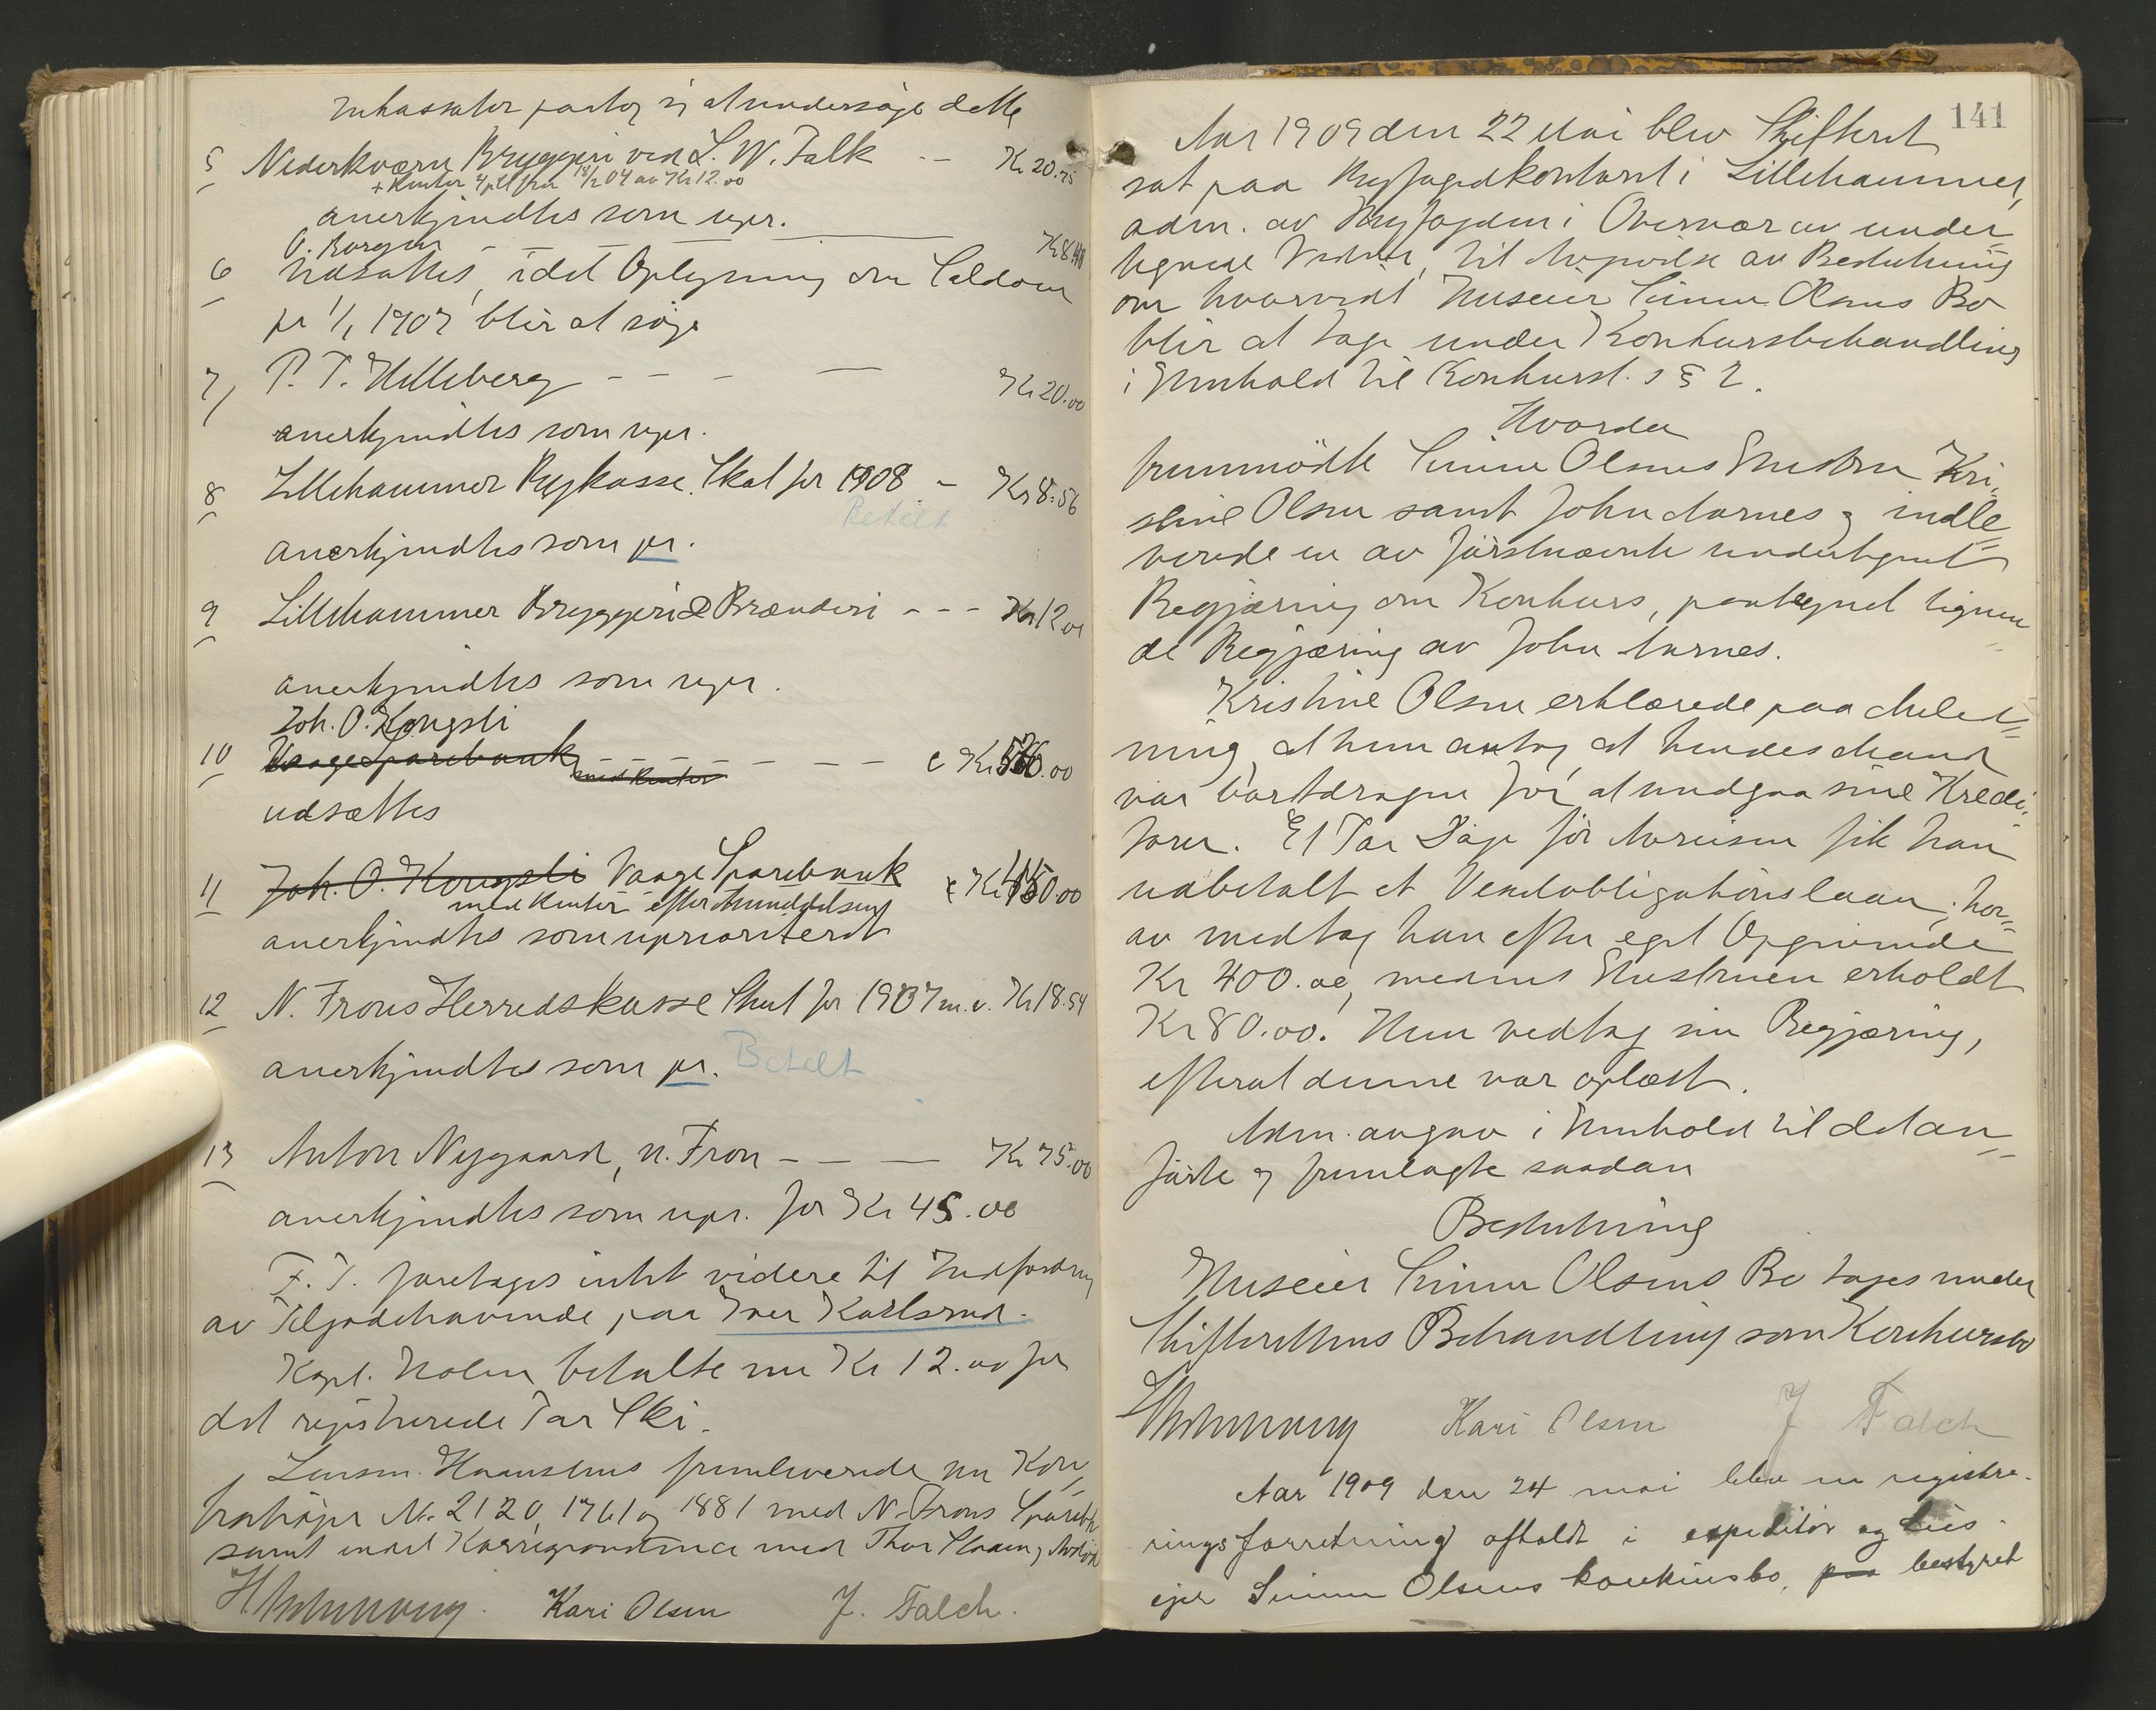 Inkassator paatog sig at undersøge dette
5 Nederkværn Bryggeri ved L. W. Falk -- Kr 20.75
+ Renter 4 pCt fra 18/2 04 av Kr 12.00
anerkjendtes som upr.
O. Borgen Kr 8.40
6 Udsattes, idet Oplysning om Saldoen
pr 1/1 1907 blir at søge
7 P. T. Hilleberg - - - Kr 20.00
anerkjendtes som upr.
8 Lillehammer Bykasse. Skat for 1908 - Kr 8.56
Betalt
anerkjendtes som pr.
9 Lillehammer Bryggeri & Brænderi - - - Kr 12.00
anerkjendtes som upr.
Joh. O. Kongsli
10 Vaage Sparebank - - - - - - - c Kr 500.00
med Renter
udsættes
11 Joh. O. Kongsli Vaage Sparebank c Kr 450.00
med Renter efter Anmeldelsen
anerkjendtes som uprioritert
12 N. Frons Herredskasse Skat for 1907 m.v. Kr 18.54
anerkjendtes som pr. Betalt
13 Anton Nygaard, N. Fron - - - Kr 75.00
anerkjendtes som upr. for Kr 45.00
F. T. foretages intet videre til Indfordring
av Tilgodehavende paa Iver Karlsrud.
Kapt. Holm betalte nu Kr 12.00 for
det registrerede Par Ski.
Lensm. Haanshus fremleverede nu Kon-
trabøger Nr. 2120, 1761 og 1881 med N. Frons Spareb
samt endel Korrespondance med Thor
Kari Olsen J. Falch.
141
Aar 1909 den 22 Mai blev Skifteret
sat paa Byfogedkontoret i Lillehammer,
adm. av Byfogden i Overvær av under
tegnede Vidner, til Avgivelse av Beslutning
om hvorvidt Huseier Simen Olsens Bo
blir at tage under Konkursbehandling
i Henhold til Konkursl.s § 2.
Hvorda
fremmødte Simen Olsens Hustru Kri-
stine Olsen samt John Aarnes og indle-
verede en av førstnævnte undertegnet
Begjæring om Konkurs, paategnet lignen
de Begjæring av John Aarnes.
Kristine Olsen erklærede paa Anled-
ning, at hun antog at hendes Mand
var bortdragen for at undgaa sine Kredi-
torer. Et Par Dage før Avreisen fik han
udbetalt et Pantobligationslaan; hor-
av medtog han efter eget Opgivende
Kr 400.00, medens Hustruen erholdt
Kr 80.00. Hun vedtog sin Begjæring,
efterat denne var oplæst.
Adm. avgav i Henhold til det an-
førte og fremlagte saadan
Beslutning
Huseier Simen Olsens Bo tages under
Skifterettens Behandling som Konkursbo
Kari Olsen J Falch
Aar 1909 den 24 mai blev en registre-
ringsforretning afholdt i expeditør og hus-
ejer Simen Olsens konkursbo, paa bestyret